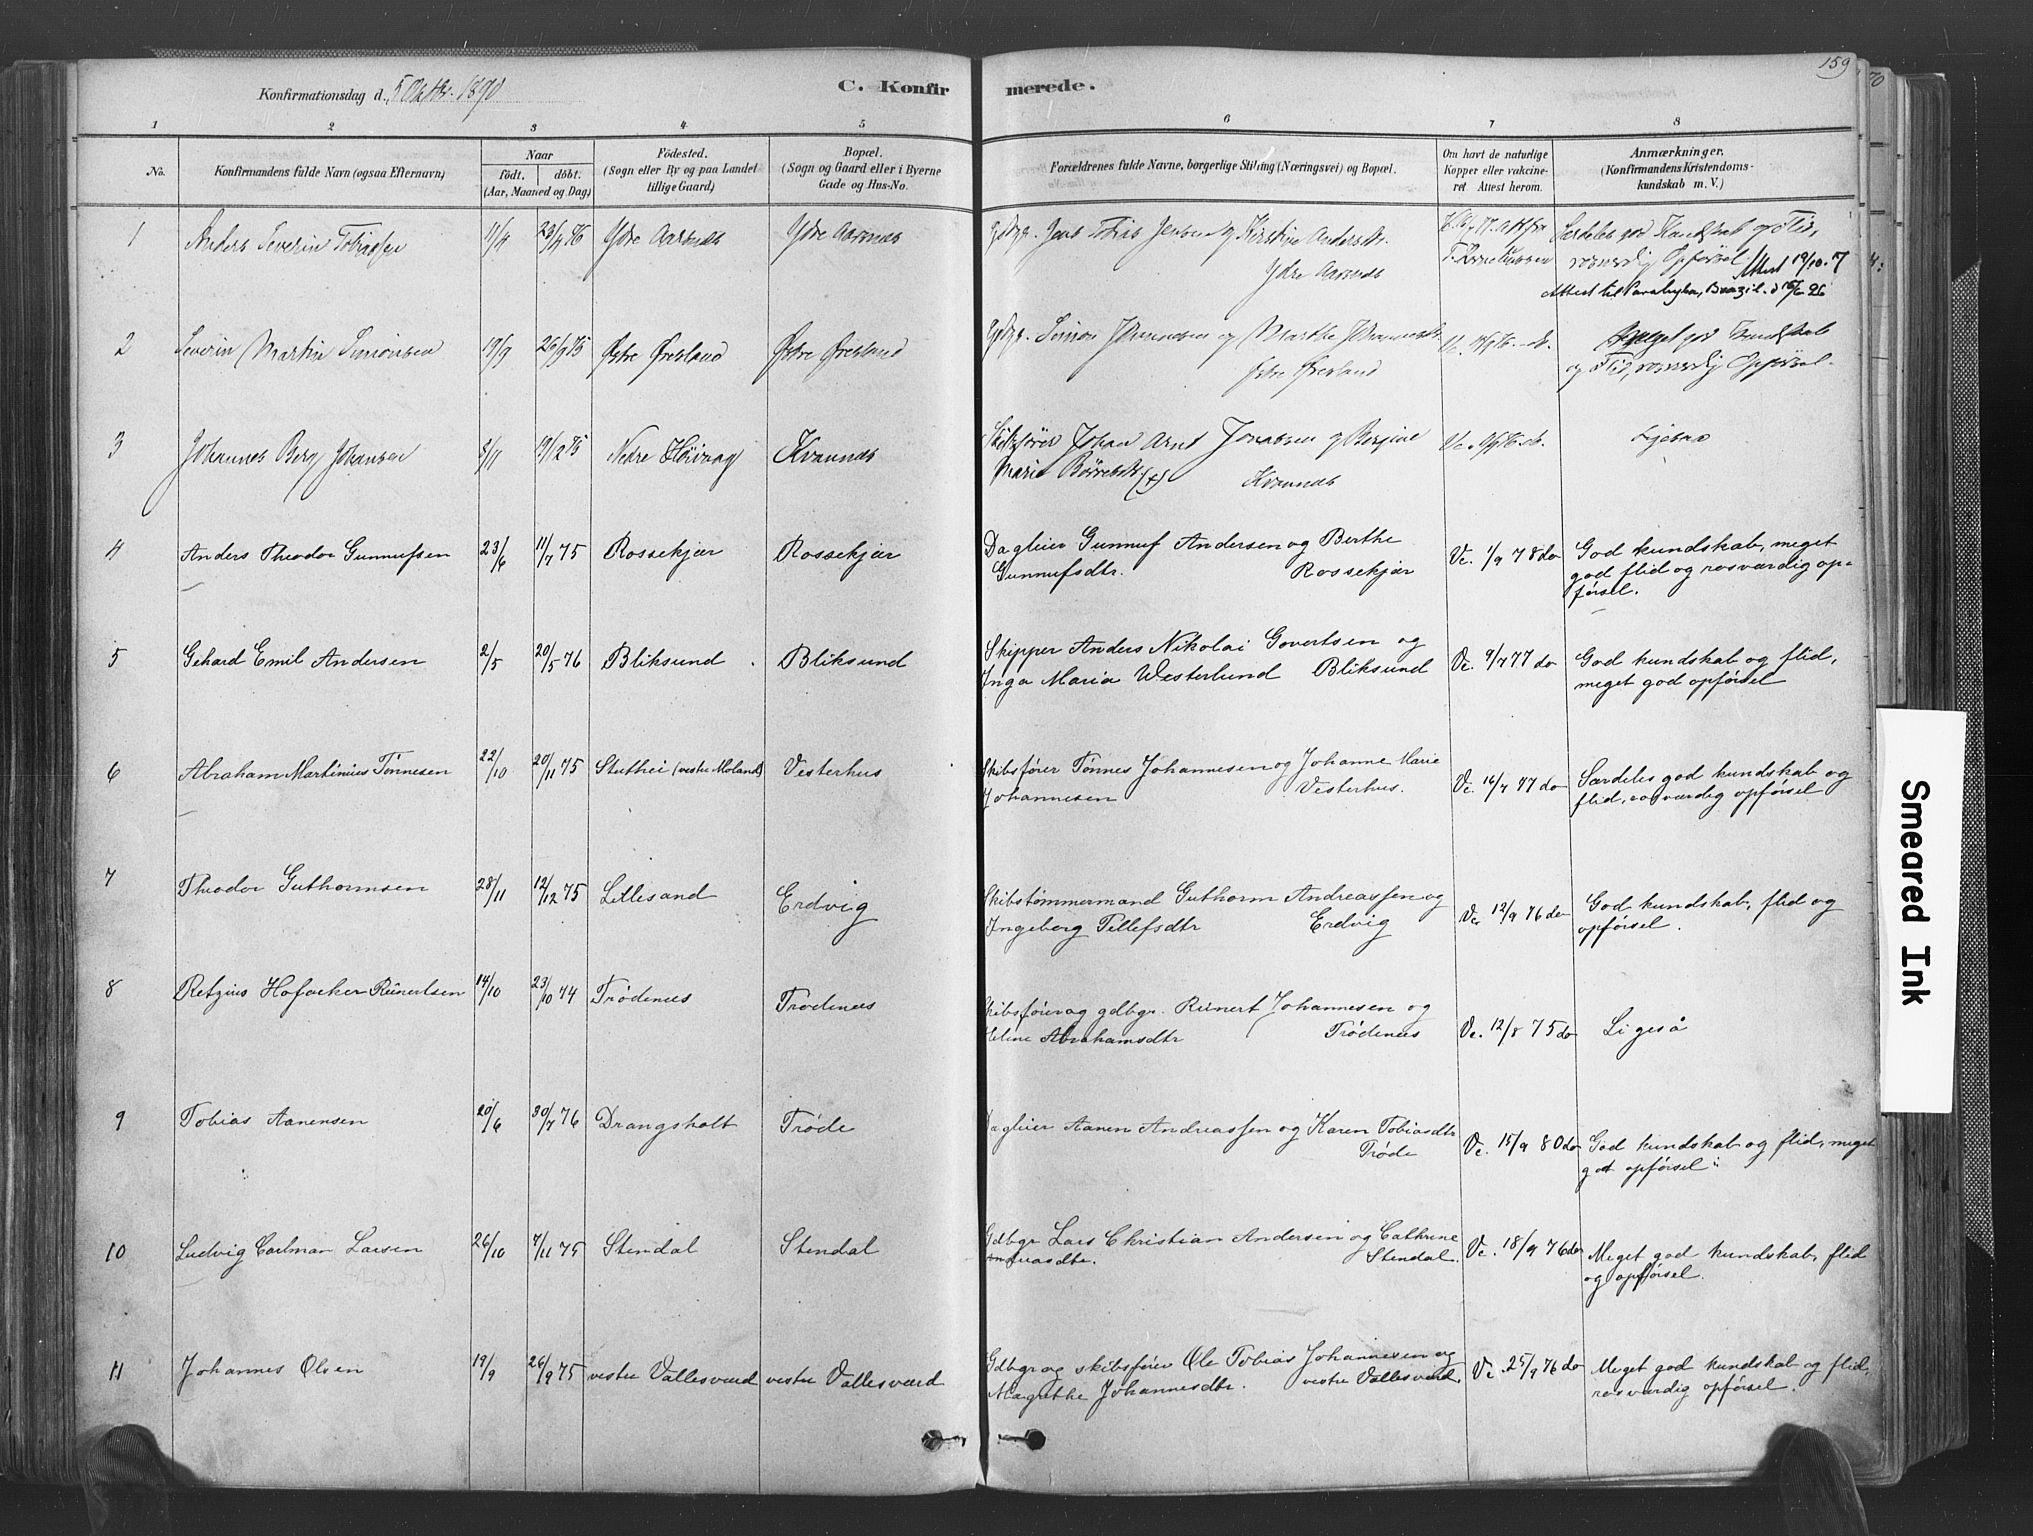 159
70
Konfirmationsdag d. 5 Oktbr. 1890
C. Konfirmerede.
1 2 3 4 5 6 7 8
No.
Konfirmandens fulde Navn (ogsaa Efternavn)
Naar
født. døbt.
(Aar, Maaned og Dag)
Fødested.
(Sogn eller By og paa Landet
tillige Gaard)
Bopæl.
(Sogn og Gaard eller i Byerne
Gade og Hus-No.
Forældrenes fulde Navne, borgerlige Stilling (Næringsvei) og Bopæl.
Om havt de naturlige
Kopper eller vakcine-
ret Attest herom.
Anmærkninger.
(Konfirmandens Kristendoms-
kundskab m. V.)
1 Anders Severin Tobiassen 11/4 23/4 76 Ydre Aasnæs Ydre Aasnæs Gdbgr. Jens Jensen og Kirstine Andersdtr.
Ydre Aasnæs
Særdeles god Kundskab og Flid,
rosværdig Opførsel Attest 19/10.17
Attest til Parahyba, Brazil. d 16/6 26
2 Severin Martin Simonsen 19/9 26/9 75 Østre Øresland Østre Øresland Gdbgr. Simon Johannesen og Marthe Johannesdtr.
Østre Øresland
Meget god Kundskab
og Flid, rosværdig Opførsel.
3 Johannes Berg Johansen 8/11 19/12 75 Nedre Høivaag Kvannes Skibsfører Johan Arnt Jonassen og Bergine
Marie Børresdtr (+) Kvannes
Ligesaa
4 Anders Theodor Gunnufsen 23/6 11/7 75 Rossekjær Rossekjær Dagleier Gunnuf Andersen og Berthe
Gunnufsdtr. Rossekjær
Vc. 1/9 78 do God kundskab, meget
god flid og rosværdig op-
førsel.
5 Gehard Emil Andersen 2/5 20/5 76 Bliksund Bliksund Skipper Anders Nikolai Govertsen og
Inga Maria Westerlund Bliksund
Vc. 9/7 77 do God kundskab og flid,
meget god opførsel
6 Abraham Martinius Tønnesen 22/10 20/11 75 Stuthei (vestre Moland) Vesterhus Skibsfører Tønnes Johannesen og Johanne Marie
Johannesen Vesterhus.
Vc. 16/7 77 do Særdeles god kundskab og
flid, rosværdig opførsel
7 Theodor Guthormsen 28/11 12/12 75 Lillesand Erdvig Skibstømmermand Guthorm Andreassen og
Ingeborg Tellefsdtr Erdvig
Vc 12/9 76 do God kundskab, flid og
opførsel.
8 Retzius Hofacker Reinertsen 14/10 23/10 74 Trødenes Trødenes Skibsfører og gdbgr. Reinert Johannesen og
Heline Abrahamsdtr Trødenes
Vc. 12/8 75 do Ligeså
9 Tobias Aanensen 20/6 30/7 76 Drangsholt Trøde Dagleier Aanen Andreassen og Karen Tobiasdtr
Trøde
Vc. 15/9 80 do God kundskab og flid, meget
god opførsel.
10 Ludvig Carlman Larsen 26/10 7/11 75 Stendal Stendal Gdbgr Lars Christian Andersen og Cathrine
Stendal.
Vc. 18/9 76 do Meget god kundskab, flid
og opførsel.
11 Johannes Olsen 19/9 26/9 75 vestre Vallesværd vestre Vallesværd Gdbgr og skibsfører Ole Tobias Johannesen og
Magrethe Johannesdtr. vestre Vallesværd.
Vc 25/9 76 do Meget god kundskab og flid,
rosværdig opførsel.
Smeared Ink